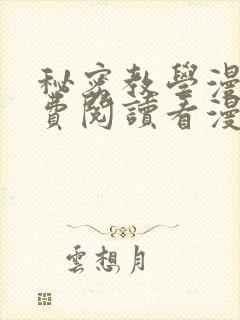 秘密教學漫
費閱讀看漫
雲想月